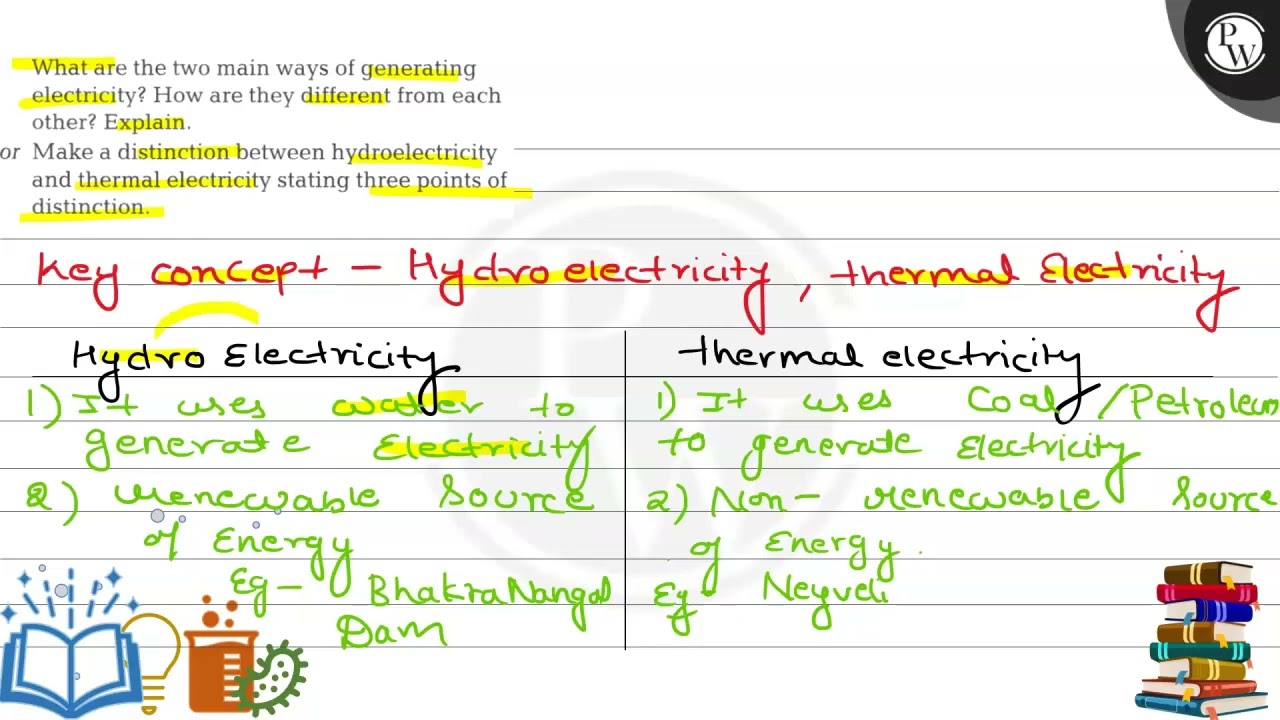 PW
What are the two main ways of generating
electricity? How are they different from each
other? Explain.
or Make a distinction between hydroelectricity
and thermal electricity stating three points of
distinction.
Key concept - Hydro electricity, thermal Electricity
Hydro Electricity
1) It uses water to
generate Electricity
2) renewable Source
of Energy
Eg - Bhakra Nangal
Dam
thermal electricity
1) It uses Coal / Petroleum
to generate Electricity
2) Non - renewable Source
of Energy.
Eg - Neyveli